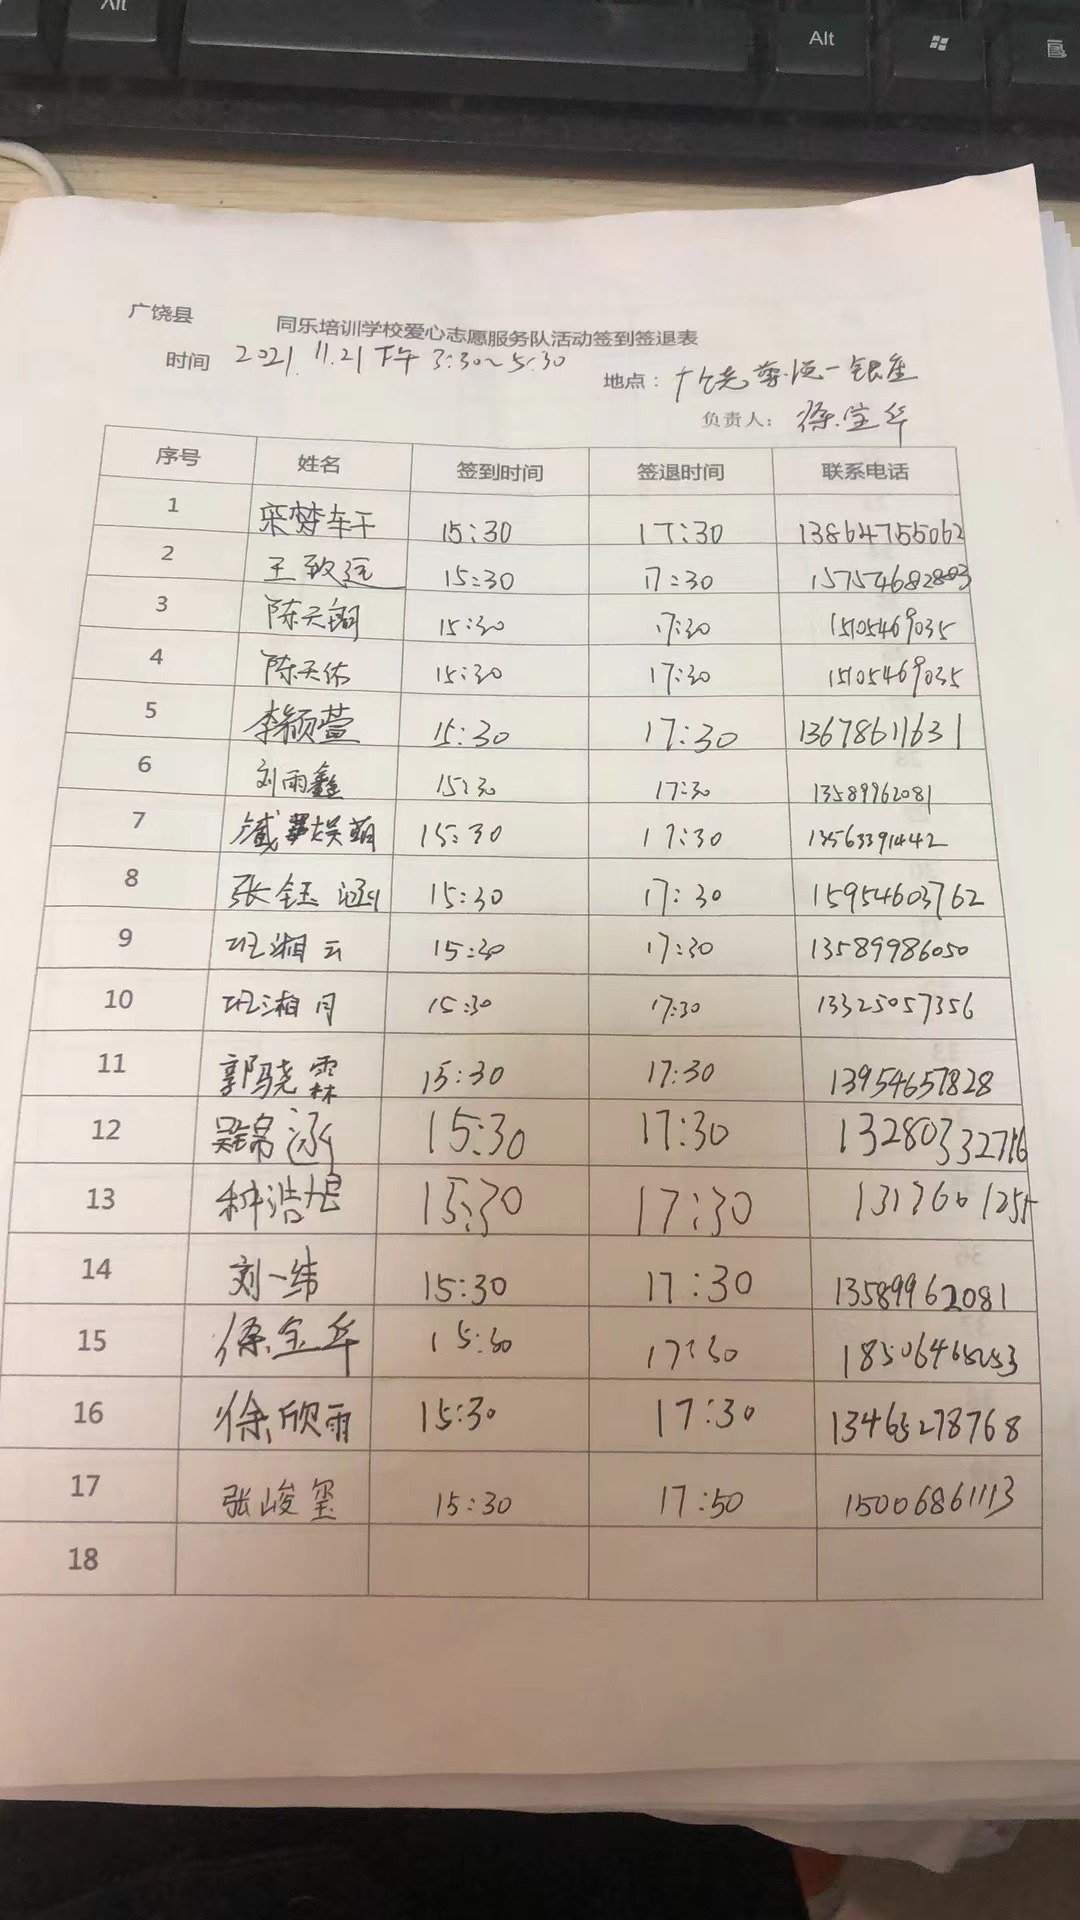 Alt
Alt
广饶县
同乐培训学校爱心志愿服务队活动签到签退表
时间 2021.11.21下午3:30~5:30
地点：广饶 一银座
负责人：徐宝华
序号 姓名 签到时间 签退时间 联系电话
1 15:30 17:30 13864755062
2 王致远 15:30 17:30
3 陈天翔 15:30 17:30 15105469035
4 陈天佑 15:30 17:30 15105469035
5 李颖萱 15:30 17:30 13678611631
6 刘雨鑫 15:30 17:30 13589962081
7 15:30 17:30 13563391442
8 张钰涵 15:30 17:30 15954603762
9 班湘云 15:30 17:30 13589986050
10 班湘月 15:30 17:30 13325057356
11 郭骁霖 15:30 17:30 13954657828
12 吴锦涵 15:30 17:30 13280332716
13 15:30 17:30
14 刘一纬 15:30 17:30 13589962081
15 徐宝华 15:30 17:30
16 徐欣雨 15:30 17:30 13465278768
17 张峻玺 15:30 17:50 15006861113
18